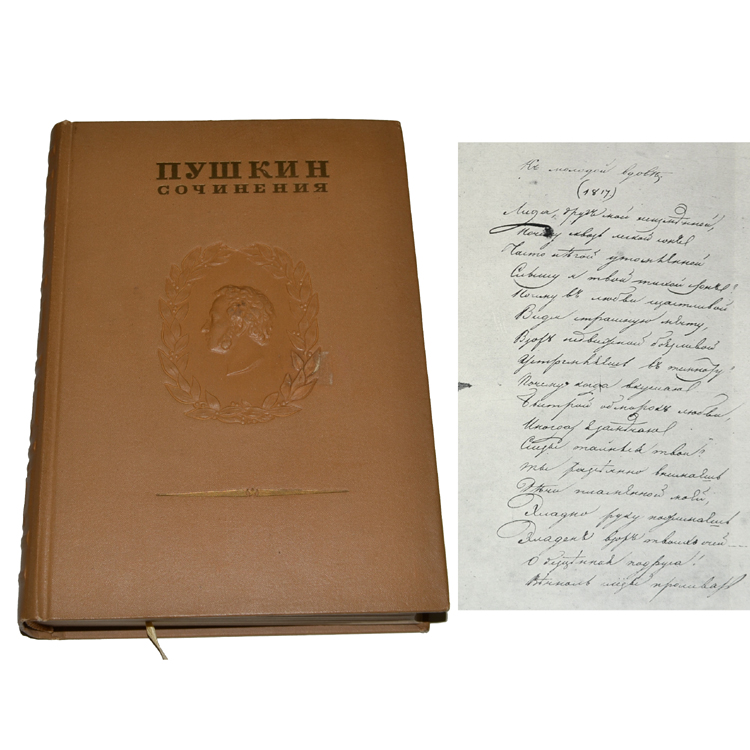 ПУШКИН
СОЧИНЕНИЯ
Къ молодой вдовѣ
(1817)
Лида, другъ мой неизмѣнной,
Почему сквозь легкой сонъ
Часто нѣгой утомленной
Слышу я твой тихой стонъ?
Почему въ любви щастливой
Видя страшную мечту,
Взоръ недвижной боязливой
Устремляешь въ темноту?
Почему когда вкушаю
Быстрой обморокъ любви,
Иногда я замѣчаю
Слезы тайныя твои?
Ты разсѣянно внимаешь
Рѣчи пламенной моей,
Хладно руку пожимаешь
Хладенъ взоръ твоихъ очей
О безцѣнная подруга!
Вѣчноль слезы проливать